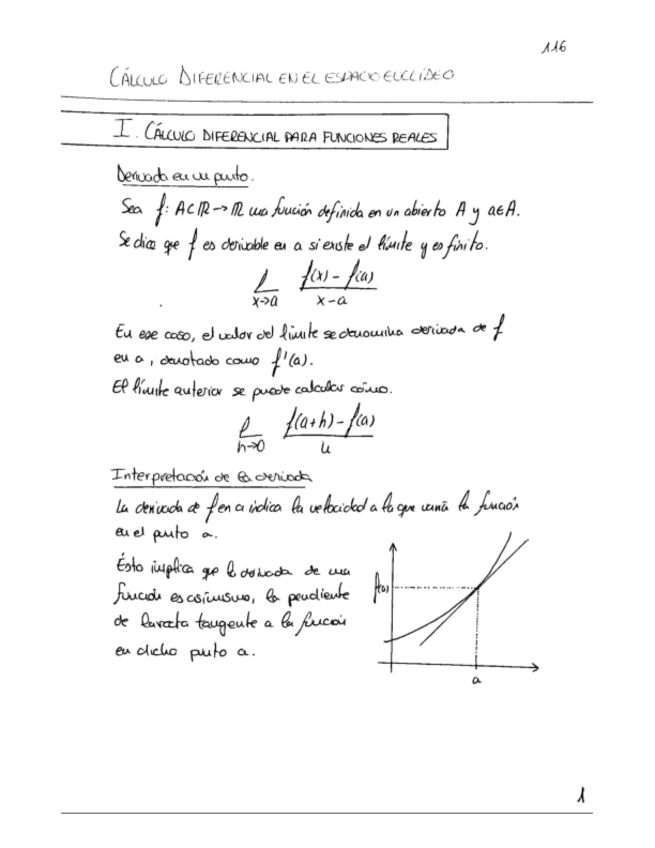 116
CÁLCULO DIFERENCIAL EN EL ESPACIO EUCLÍDEO
I. CÁLCULO DIFERENCIAL PARA FUNCIONES REALES
Derivada en un punto.
Sea f: A⊂ℝ→ℝ una función definida en un abierto A y a∈A.
Se dice que f es derivable en a si existe el límite y es finito.
l f(x) - f(a)
x→a x-a
En ese caso, el valor del límite se denomina derivada de f
en a, denotado como f'(a).
El límite anterior se puede calcular cómo.
l f(a+h) - f(a)
h→0 h
Interpretación de la derivada
La derivada de f en a indica la velocidad a la que varía la función
en el punto a.
Ésto implica que la derivada de una
función es asimismo, la pendiente
de la recta tangente a la función
en dicho punto a.
f(a)
a
1